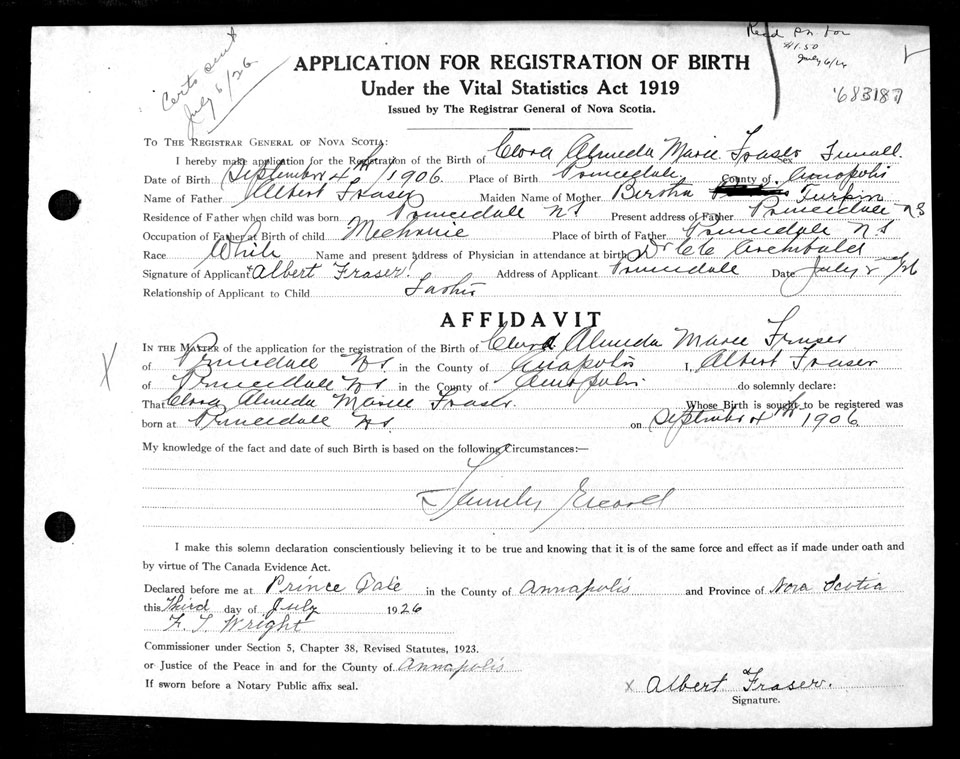 Certs sent
July 6/26
Recd P.N. for
$1.50
July 6/26
683187
APPLICATION FOR REGISTRATION OF BIRTH
Under the Vital Statistics Act 1919
Issued by The Registrar General of Nova Scotia.
TO THE REGISTRAR GENERAL OF NOVA SCOTIA:
I hereby make application for the Registration of the Birth of Clora Almeda Marie Fraser Sex Femall.
Date of Birth September 4th/1906. Place of Birth Princedale, County of Anapolis
Name of Father Albert Fraser Maiden Name of Mother Bertha Turpin
Residence of Father when child was born Princedale NS Present address of Father Princedale NS
Occupation of Father at Birth of child Mechanic Place of birth of Father Princedale N.S
Race White Name and present address of Physician in attendance at birth Dr CC Archibald
Signature of Applicant Albert Fraser. Address of Applicant Princedale Date July 2nd/26
Relationship of Applicant to Child Father
AFFIDAVIT
IN THE MATTER of the application for the registration of the Birth of Clora Almeda Marie Fraser
of Princedall NS in the County of Anapolis I, Albert Fraser
of Princedall NS in the County of Anapolis. do solemnly declare:
That Clora Almeda Mariee Fraser. Whose Birth is sought to be registered was
born at Princedall NS. on September 4th 1906
My knowledge of the fact and date of such Birth is based on the following Circumstances:—
Family Record
I make this solemn declaration conscientiously believing it to be true and knowing that it is of the same force and effect as if made under oath and
by virtue of The Canada Evidence Act.
Declared before me at Prince Dale in the County of Annapolis and Province of Nova Scotia
this Third day of July 1926
F. T. Wright
Commissioner under Section 5, Chapter 38, Revised Statutes, 1923.
or Justice of the Peace in and for the County of Annapolis
If sworn before a Notary Public affix seal.
X Albert Fraser.
Signature.